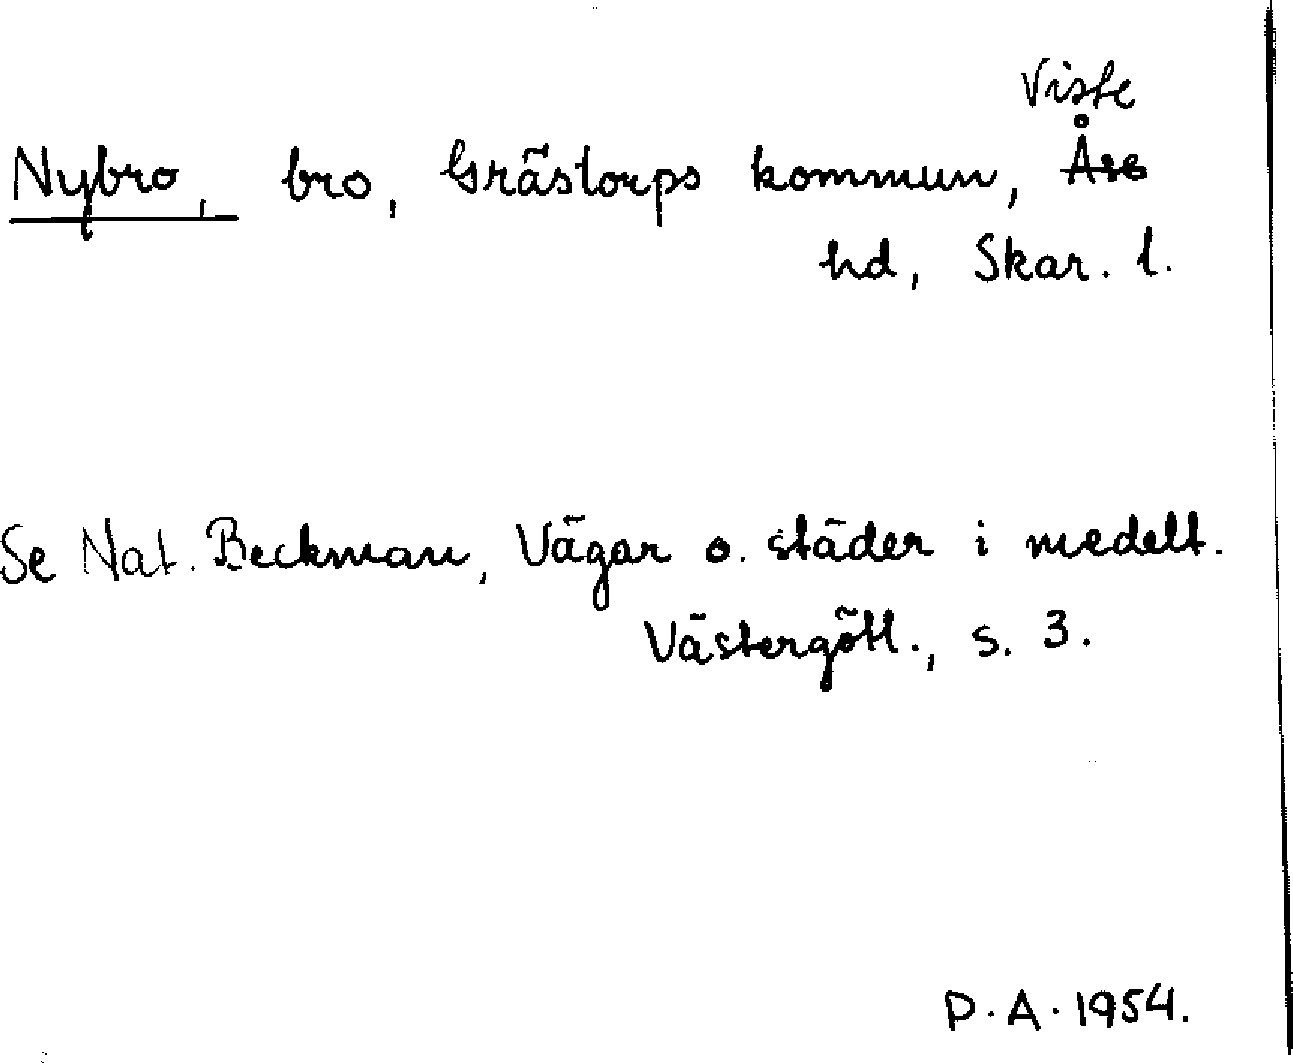 Viste
Nybro, bro, Grästorps kommun, Åse
hd, Skar. l.
Se Nat. Beckman, Vägar o. städer i medelt.
Västergötl., s. 3.
P.A. 1954.